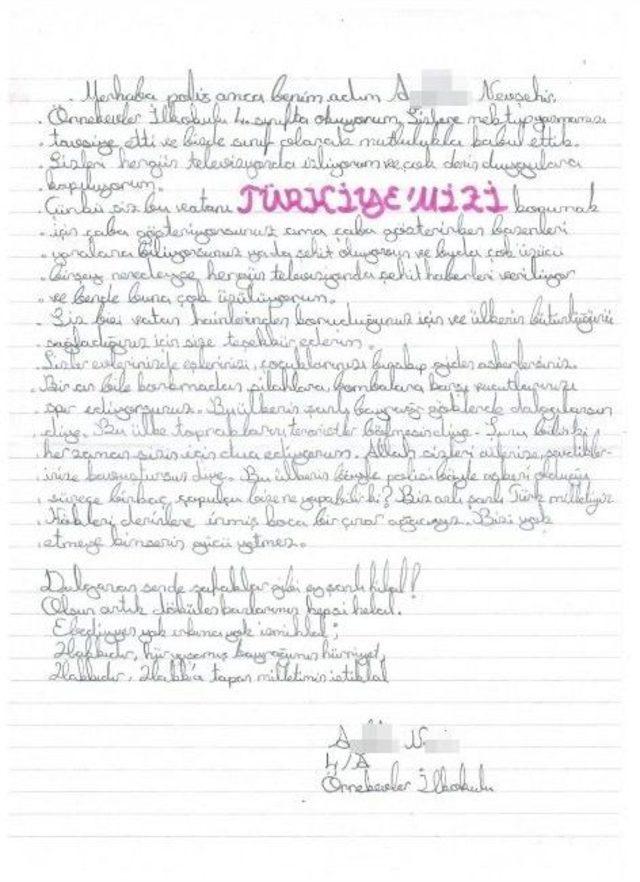 Merhaba polis amca benim adım A Nevşehir
Örnekevler İlkokulu 4. sınıfta okuyorum. Sizlere mektup yazmamızı
tavsiye etti ve bizde sınıf olarak mutlulukla kabul ettik.
Sizleri hergün televizyonda izliyorum ve çok derin duygulara
kapılıyorum.
Çünkü siz bu vatanı TÜRKİYE'MİZİ korumak
için çaba gösteriyorsunuz ama çaba gösterirken bazenleri
yaralana biliyorsunuz yada şehit oluyorsun ve buda çok üzücü
birşey neredeyse hergün televizyonda şehit haberleri veriliyor
ve bende buna çok üzülüyorum.
Siz bizi vatan hainlerinden koruduğunuz için ve ülkenin bütünlüğünü
sağladığınız için size teşekkür ederim.
Sizler evlerinizde eşlerinizi, çocuklarınızı bırakıp giden askerlersiniz.
Bir an bile korkmadan silahlara, bombalara karşı vucutlarınızı
siper ediyorsunuz. Bu ülkenin şanlı bayrağı göklerde dalgalansın
diye. Bu ülke topraklarını teröristler bölmesin diye. Şunu bilin ki
her zaman sizin için dua ediyorum. Allah sizleri ailenize, sevdikler-
inize kavuştursun diye. Bu ülkenin böyle polisi böyle askeri olduğu
sürece birkaç çapulcu bize ne yapabilir ki? Biz asil şanlı Türk milletiyiz
Kökleri derinlere inmiş koca bir çınar ağacıyız. Bizi yok
etmeye kimsenin gücü yetmez.
Dalgalan sende şafaklar gibi ey şanlı hilal!
Olsun artık dökülen kanlarımın hepsi helal.
Ebediyyen yok ırkıma yok izmihlal;
Hakkıdır, hür yaşamış bayrağımın hürriyet,
Hakkıdır, Hakk'a tapan milletimin istiklal
A N
4/A
Örnekevler İlkokulu